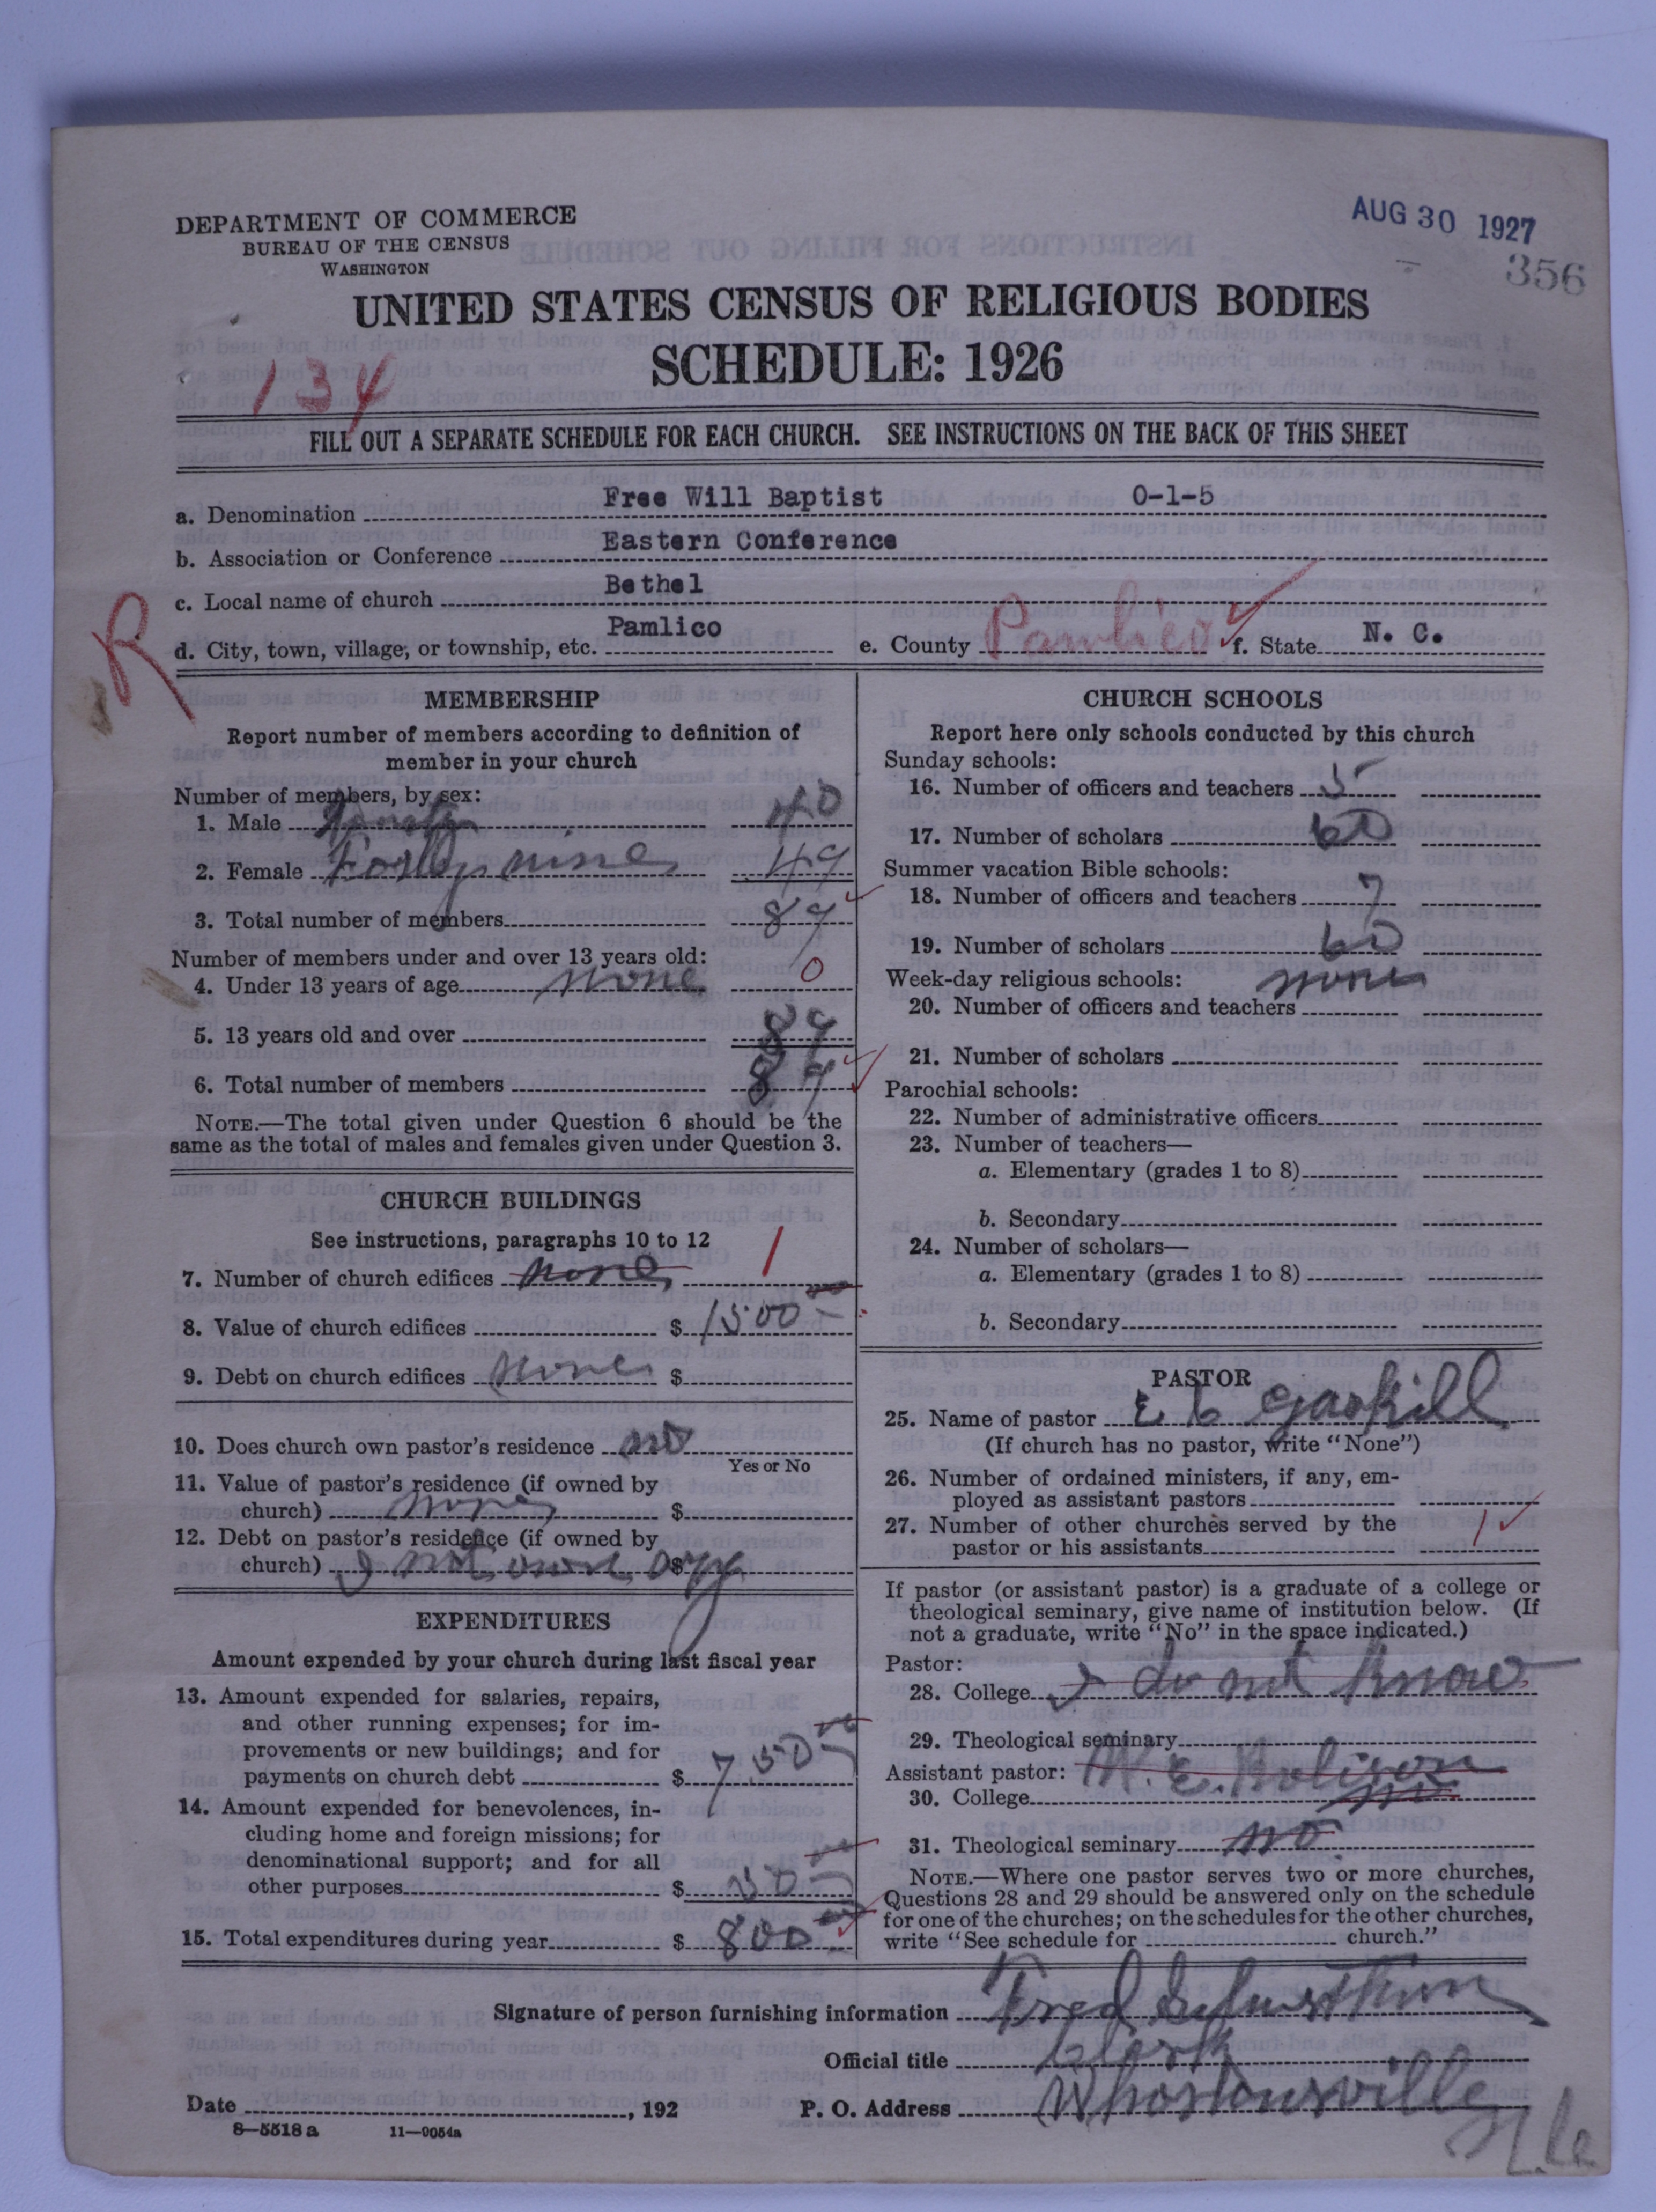 DEPARTMENT OF COMMERCE
BUREAU OF THE CENSUS
WASHINGTON
AUG 30 1927
356
UNITED STATES CENSUS OF RELIGIOUS BODIES
SCHEDULE: 1926
134
FILL OUT A SEPARATE SCHEDULE FOR EACH CHURCH. SEE INSTRUCTIONS ON THE BACK OF THIS SHEET
a. Denomination Free Will Baptist 0-1-5
b. Association or Conference Eastern Conference
c. Local name of church Bethel
R
d. City, town, village, or township, etc. Pamlico e. County Pamlico f. State N. C.
MEMBERSHIP
Report number of members according to definition of
member in your church
Number of members, by sex:
1. Male 40
2. Female Forty nine 49
3. Total number of members 89
Number of members under and over 13 years old:
4. Under 13 years of age none 0
5. 13 years old and over 89
6. Total number of members 89
NOTE.—The total given under Question 6 should be the
same as the total of males and females given under Question 3.
CHURCH BUILDINGS
See instructions, paragraphs 10 to 12
7. Number of church edifices none 1
8. Value of church edifices $ 1500
9. Debt on church edifices none $
10. Does church own pastor's residence no
Yes or No
11. Value of pastor's residence (if owned by
church) none $
12. Debt on pastor's residence (if owned by
church) not own any $
EXPENDITURES
Amount expended by your church during last fiscal year
13. Amount expended for salaries, repairs,
and other running expenses; for im-
provements or new buildings; and for
payments on church debt $ 750
14. Amount expended for benevolences, in-
cluding home and foreign missions; for
denominational support; and for all
other purposes $ 50
15. Total expenditures during year $ 800
CHURCH SCHOOLS
Report here only schools conducted by this church
Sunday schools:
16. Number of officers and teachers 5
17. Number of scholars 60
Summer vacation Bible schools:
18. Number of officers and teachers 7
19. Number of scholars 60
Week-day religious schools: none
20. Number of officers and teachers
21. Number of scholars
Parochial schools:
22. Number of administrative officers
23. Number of teachers—
a. Elementary (grades 1 to 8)
b. Secondary
24. Number of scholars—
a. Elementary (grades 1 to 8)
b. Secondary
PASTOR
25. Name of pastor Gaskill
(If church has no pastor, write "None")
26. Number of ordained ministers, if any, em-
ployed as assistant pastors
27. Number of other churches served by the
pastor or his assistants 1
If pastor (or assistant pastor) is a graduate of a college or
theological seminary, give name of institution below. (If
not a graduate, write "No" in the space indicated.)
Pastor:
28. College I do not know
29. Theological seminary
Assistant pastor:
30. College no
31. Theological seminary no
NOTE.—Where one pastor serves two or more churches,
Questions 28 and 29 should be answered only on the schedule
for one of the churches; on the schedules for the other churches,
write "See schedule for church."
Signature of person furnishing information Fred
Official title Clerk
Date , 192 P. O. Address Whortonsville
N. C.
8—5518 a 11—9054a